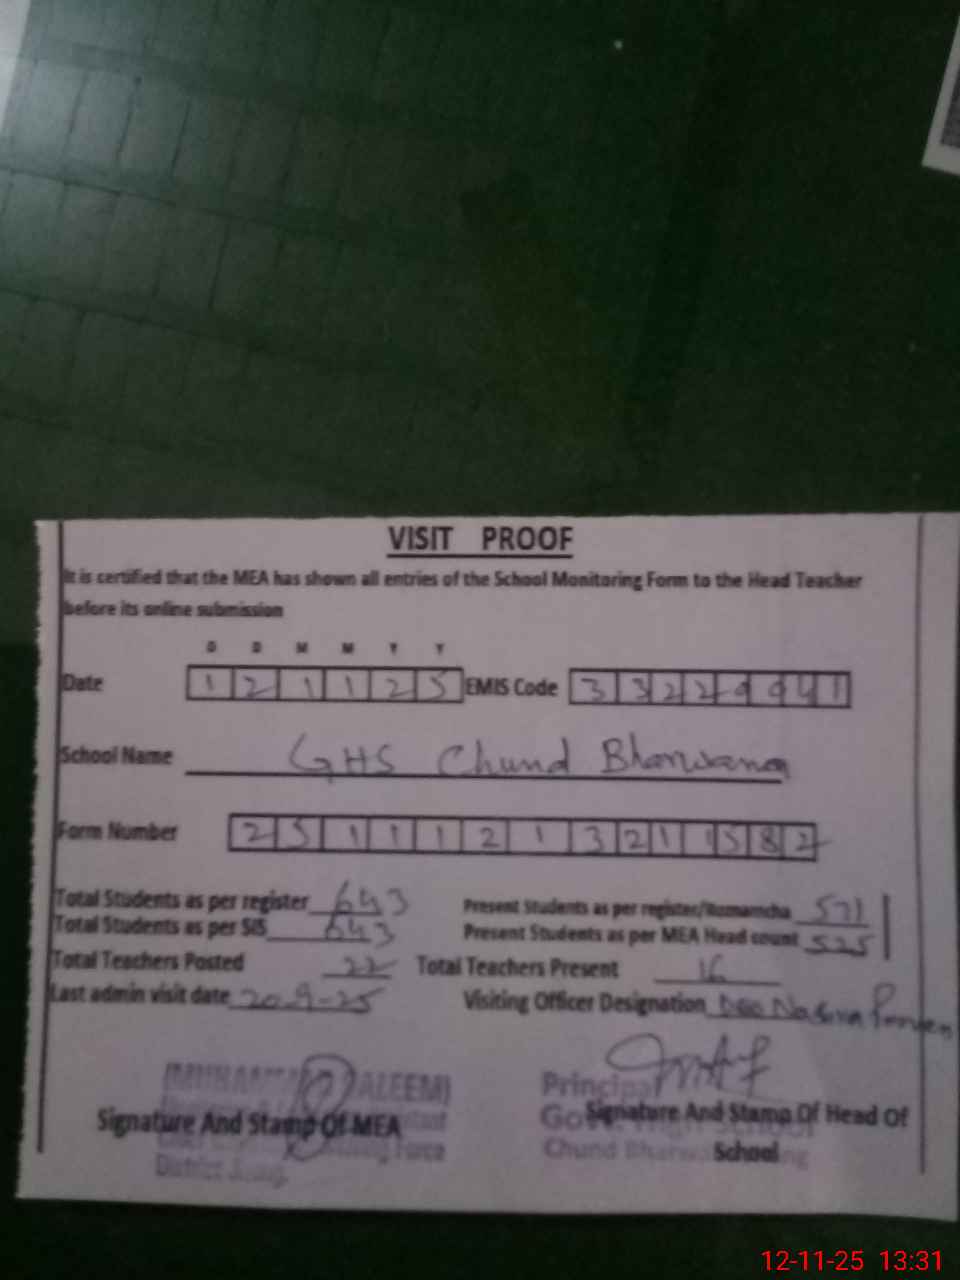 VISIT PROOF
It is certified that the MEA has shown all entries of the School Monitoring Form to the Head Teacher
before its online submission
D D M M Y Y
Date 1 2 1 1 2 5 EMIS Code 3 3 2 2 9 9 4 1
School Name GHS Chund Bharwana
Form Number 2 5 1 1 1 2 1 3 2 1 1 5 8 2
Total Students as per register 643 Present Students as per register/Rozнamcha 571
Total Students as per SIS 643 Present Students as per MEA Head count 525
Total Teachers Posted 22 Total Teachers Present 16
Last admin visit date 20-9-25 Visiting Officer Designation Deo
Signature And Stamp Of MEA
District Jhang
Principal
Govt. High School
Signature And Stamp Of Head Of
School
Chund Bharwana
12-11-25 13:31